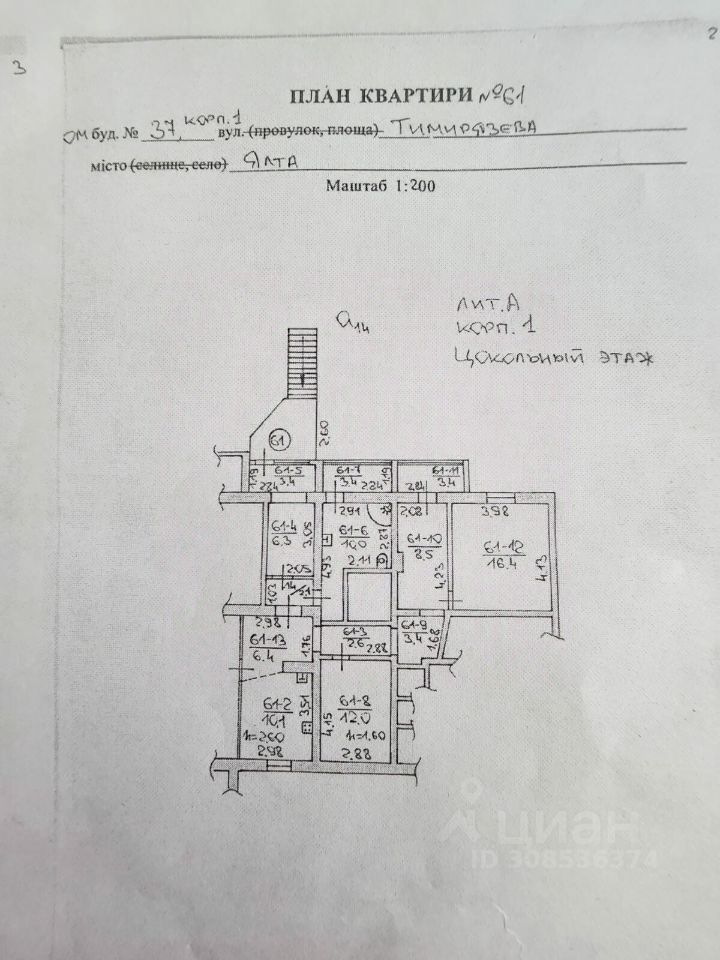 2
3
ПЛАН КВАРТИРИ №61
ом буд. № 37, корп.1 вул. (провулок, площа) ТИМИРЯЗЕВА
місто (селище, село) ЯЛТА
Маштаб 1:200
ЛИТ.А
а14
КОРП.1
ЦОКОЛЬНЫЙ ЭТАЖ
61
2.60
1.19
61-5
3.4
2.24
61-7
3.4
2.24
1.19
61-11
3.4
2.84
61-4
6.3
3.05
2.05
2.91
61-6
10.0
2.87
2.11
4.93
2.08
61-10
8.5
4.23
3.98
61-12
16.4
4.13
1.03
61-1
2.98
61-13
6.4
1.76
61-3
2.6
2.88
61-9
3.4
1.68
61-2
10.1
h=2.60
2.98
3.51
61-8
12.0
4.15
h=1.60
2.88
циан
ID 308536374